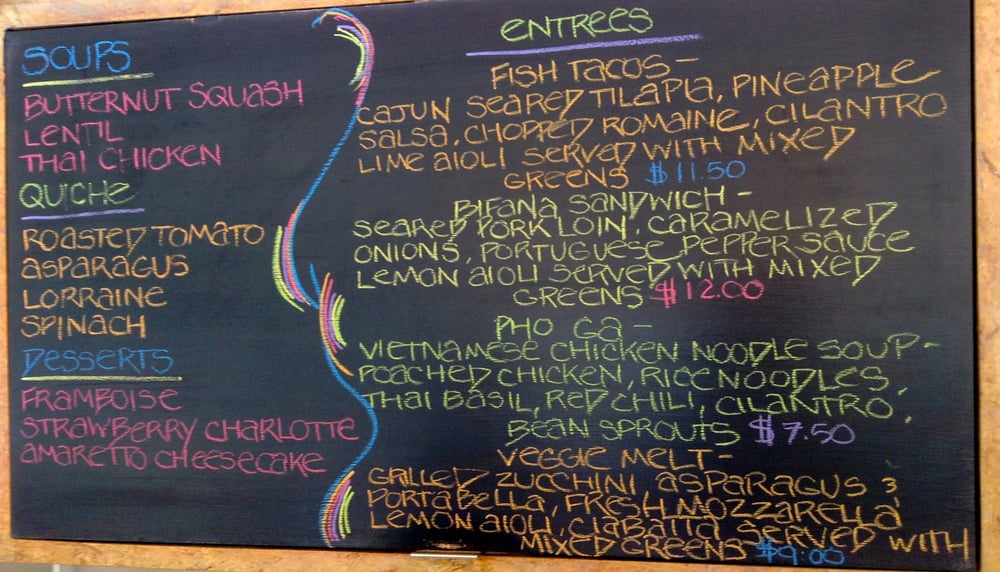 SOUPS
BUTTERNUT SQUASH
LENTIL
THAI CHICKEN
QUICHE
ROASTED TOMATO
ASPARAGUS
LORRAINE
SPINACH
DESSERTS
FRAMBOISE
STRAWBERRY CHARLOTTE
AMARETTO CHEESECAKE
ENTREES
FISH TACOS -
CAJUN SEARED TILAPIA, PINEAPPLE
SALSA, CHOPPED ROMAINE, CILANTRO
LIME AIOLI SERVED WITH MIXED
GREENS $11.50
BIFANA SANDWICH -
SEARED PORK LOIN, CARAMELIZED
ONIONS, PORTUGUESE PEPPER SAUCE
LEMON AIOLI SERVED WITH MIXED
GREENS $12.00
PHO GA -
VIETNAMESE CHICKEN NOODLE SOUP -
POACHED CHICKEN, RICE NOODLES,
THAI BASIL, RED CHILI, CILANTRO,
BEAN SPROUTS $7.50
VEGGIE MELT -
GRILLED ZUCCHINI ASPARAGUS &
PORTABELLA, FRESH MOZZARELLA
LEMON AIOLI, CIABATTA SERVED WITH
MIXED GREENS $9.00